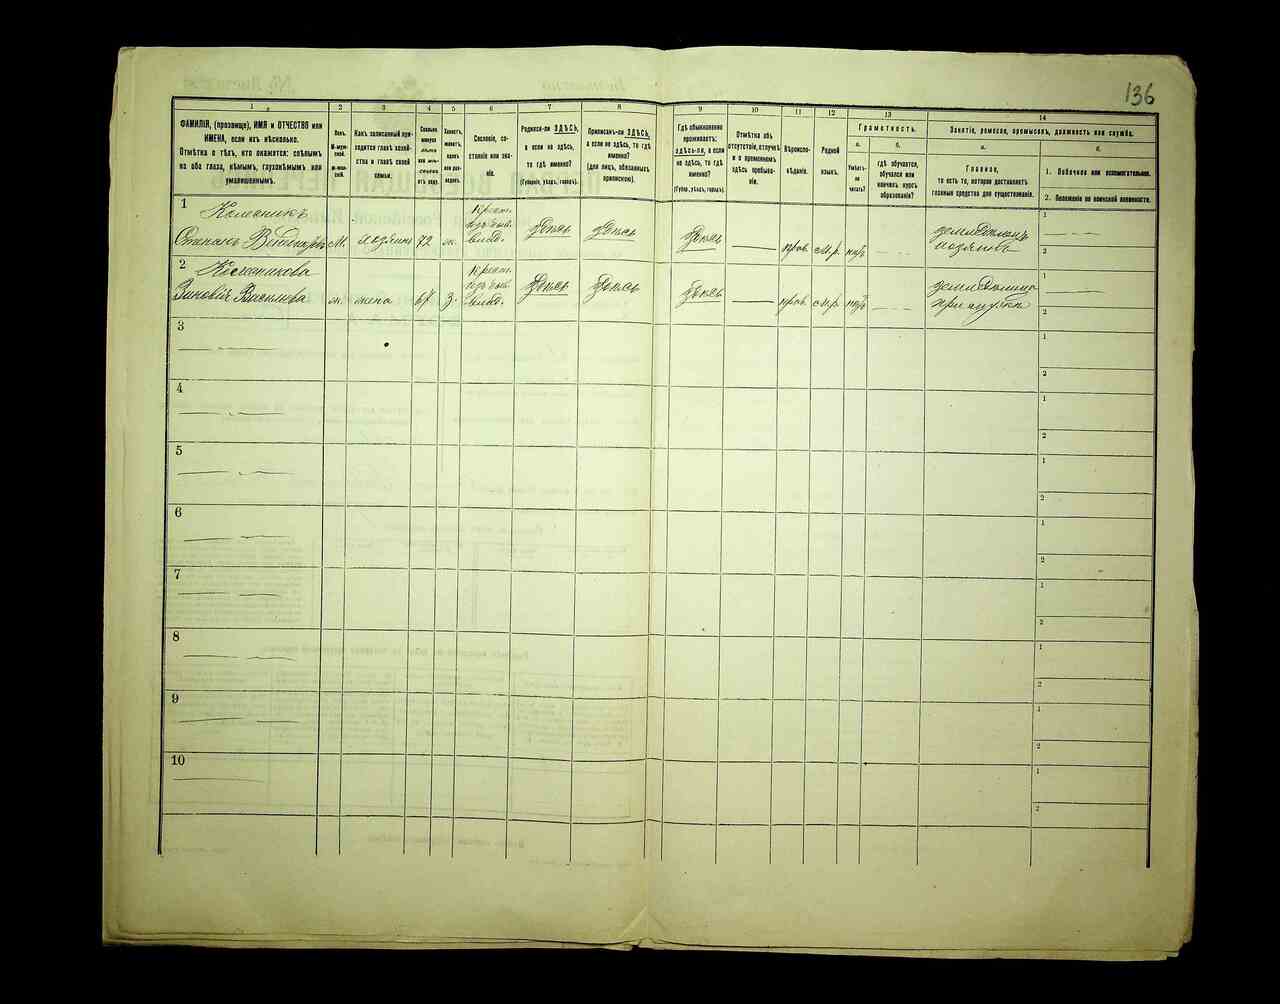 136
1 2 3 4 5 6 7 8 9 10 11 12 13 14
ФАМИЛІЯ, (прозвище), ИМЯ и ОТЧЕСТВО или
ИМЕНА, если ихъ нѣсколько.
Отмѣтка о тѣхъ, кто окажется: слѣпымъ
на оба глаза, нѣмымъ, глухонѣмымъ или
умалишеннымъ.
Полъ.
М-муж-
ской.
Ж-жен-
скій.
Какъ записанный при-
ходится главѣ хозяй-
ства и главѣ своей
семьи.
Сколько
минуло
лѣтъ
или мѣ-
сяцевъ
отъ роду.
Холостъ,
женатъ,
вдовъ
или раз-
веденъ.
Сословіе, со-
стояніе или зва-
ніе.
Родился-ли ЗДѢСЬ,
а если не здѣсь,
то гдѣ именно?
(Губернія, уѣздъ, городъ).
Приписанъ-ли ЗДѢСЬ,
а если не здѣсь, то гдѣ
именно?
(для лицъ, обязанныхъ
припискою).
Гдѣ обыкновенно
проживаетъ:
ЗДѢСЬ-ЛИ, а если
не здѣсь, то гдѣ
именно?
(Губерн., уѣздъ, городъ).
Отмѣтка объ
отсутствіи, отлучкѣ
и о временномъ
здѣсь пребыва-
ніи.
Вѣроиспо-
вѣданіе.
Родной
языкъ.
Грамотность.
а.
Умѣетъ-
ли
читать?
б.
гдѣ обучается,
обучался или
кончилъ курсъ
образованія?
Занятіе, ремесло, промыселъ, должность или служба.
а.
Главное,
то есть то, которое доставляетъ
главныя средства для существованія.
б.
1. Побочное или вспомогательное.
2. Положеніе по воинской повинности.
1
Колесникъ
Степанъ
М. хозяинъ 72 ж.
Крест.
изъ быв.
влад.
Здѣсь Здѣсь Здѣсь — прав. м.р. нѣтъ — - -
земледѣлецъ
хозяинъ
1
2
2
Колесникова
Зиновія Васильева
ж. жена 67 з.
Крест.
изъ быв.
влад.
Здѣсь Здѣсь Здѣсь — прав. м.р. нѣтъ — - -
земледѣлица
при мужѣ
1
2
3
1
2
4
1
2
5
1
2
6
1
2
7
1
2
8
1
2
9
1
2
10
1
2